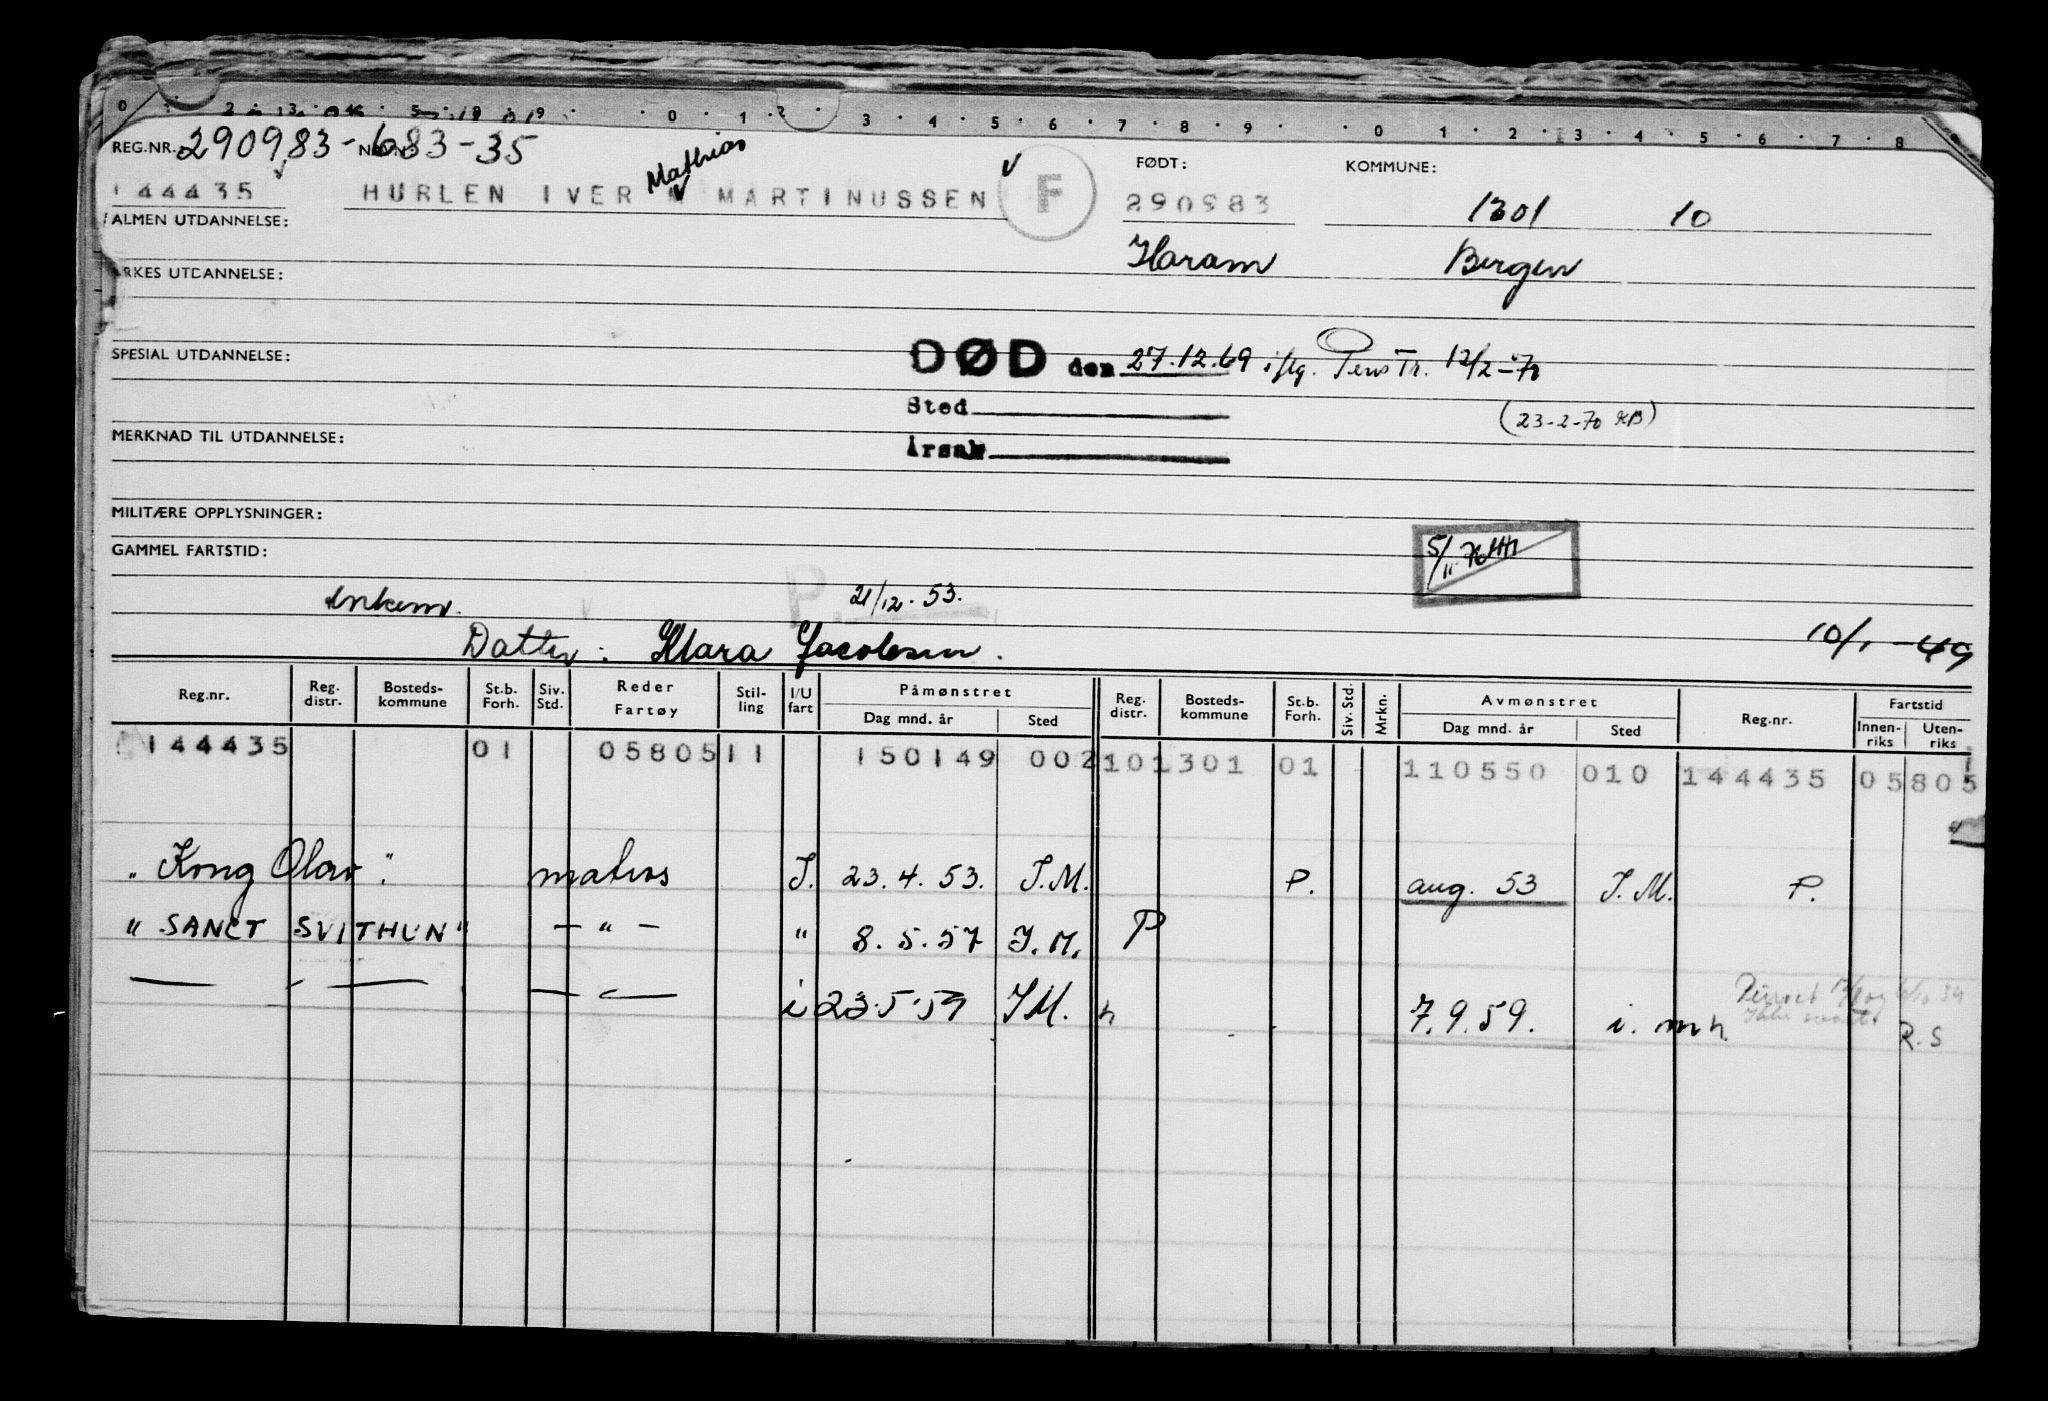 0 1 2 3 4 5 6 7 8 9 0 1 2 3 4 5 6 7 8
REG.NR. 290983-683-35
Mathias
144435 HURLEN IVER M MARTINUSSEN F FØDT: 290983 KOMMUNE: 1301 10
ALMEN UTDANNELSE:
Haram Bergen
YRKES UTDANNELSE:
SPESIAL UTDANNELSE:
DØD den 27.12.69 iflg. Pens Tr. 12/2-70
Sted
(23-2-70 KB)
MERKNAD TIL UTDANNELSE:
Årsak
MILITÆRE OPPLYSNINGER:
GAMMEL FARTSTID:
5/11 70
enkem. P. 21/12.53.
Datter: Klara Jacobsen. 10/1-49
Reg.nr. Reg. distr. Bosteds-kommune St.b. Forh. Siv. Std. Reder Fartøy Stil-ling I/U fart Påmønstret Dag mnd. år Sted Reg. distr. Bosteds-kommune St.b. Forh. Siv. Std. Mrkn. Avmønstret Dag mnd. år Sted Reg.nr. Fartstid Innen-riks Uten-riks
144435 01 05805 11 150149 002 10 1301 01 110550 010 144435 05805
"Kong Olav" matros I. 23.4.53. I.M. P. aug. 53 I.M. P.
"SANCT SVITHUN" — " — " 8.5.57 I.M. P
— — — — — i 23.5.59 IM. h 7.9.59. i. mh. R.S